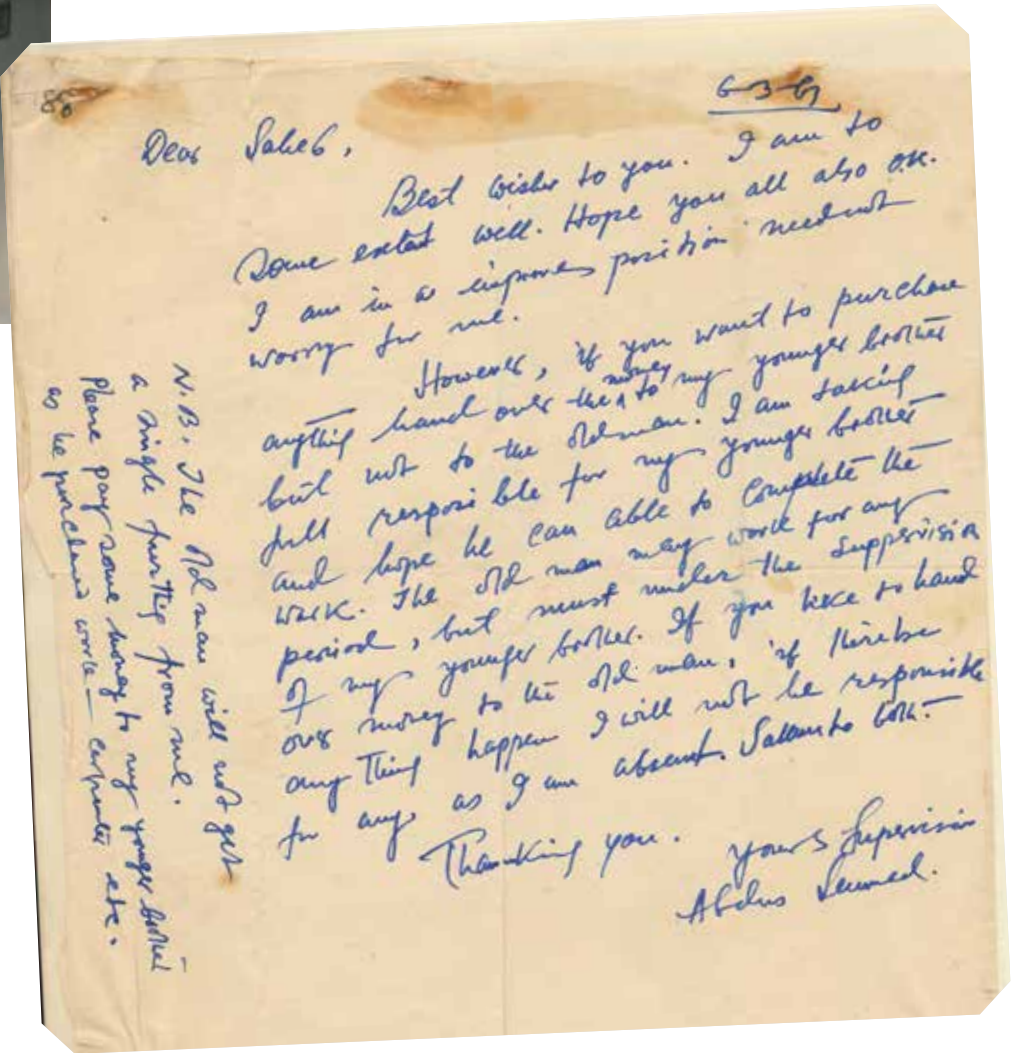 6-3-61
Dear Saheb,
Best wishes to you. I am to
some extent well. Hope you all also ok.
I am in a improves position need not
worry for me.
However, if you want to purchase
anything hand over the money to my younger brother
but not to the old man. I am taking
full resposible for my younger brother
and hope he can able to complete the
work. The old man may work for any
period, but must under the suppervision
of my younger brother. If you like to hand
over money to the old man, if there be
any thing happen I will not be responsible
for any as I am absent. Salam to both.
Thanking you.
yours Supervisor
Abdus Samad.
N.B. The old man will not get
a single further from me.
Please pay some money to my younger brother
as he purchased work — carpenter etc.